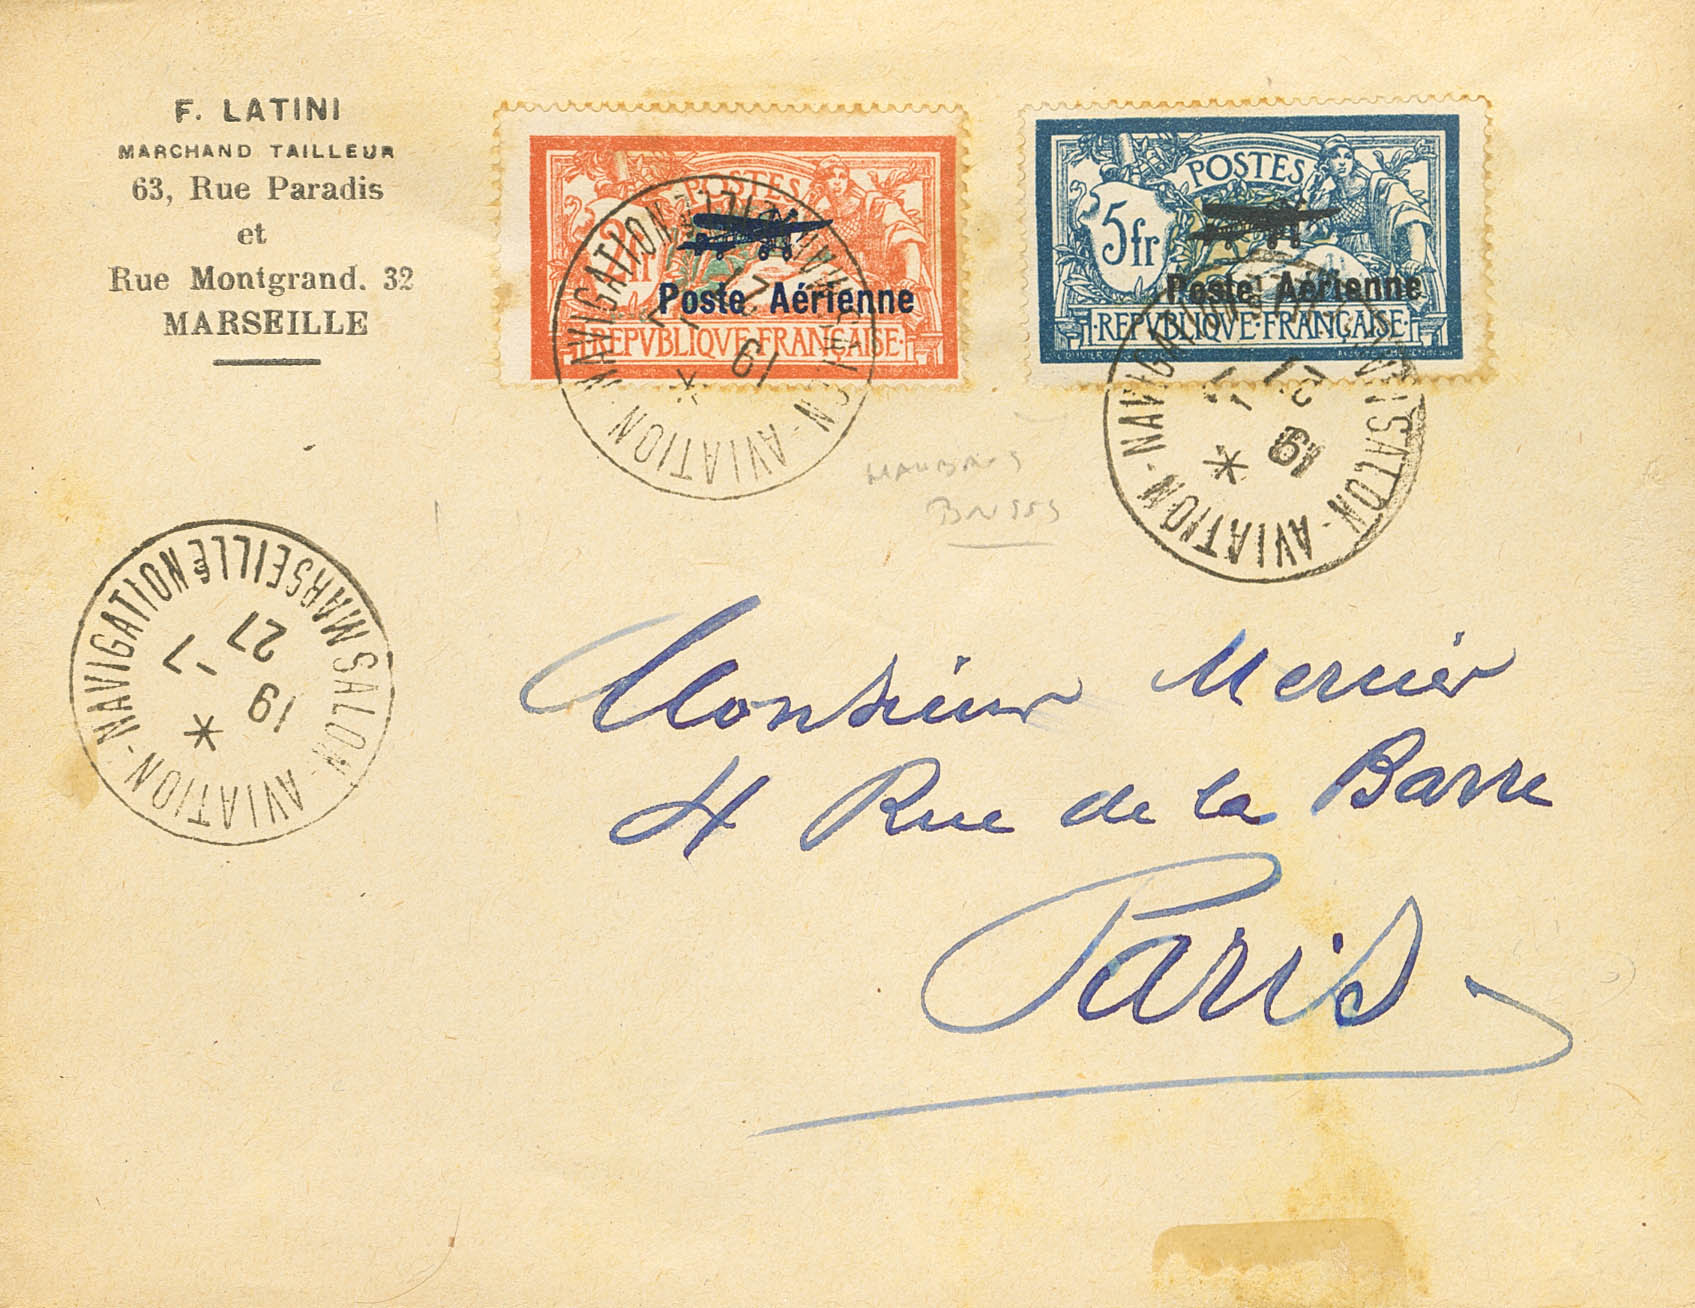 F. LATINI
MARCHAND TAILLEUR
63, Rue Paradis
et
Rue Montgrand. 32
MARSEILLE
POSTES
2fr
Poste Aérienne
REPVBLIQVE·FRANÇAISE
POSTES
5fr
Poste Aérienne
·REPVBLIQVE·FRANÇAISE·
SALON-AVIATION-NAVIGATION
MARSEILLE
19
7
27
SALON-AVIATION-NAVIGATION
19
7
27
SALON-AVIATION-NAVIGATION
MARSEILLE
19
7
27
Monsieur Mercier
4 Rue de la Barre
Paris